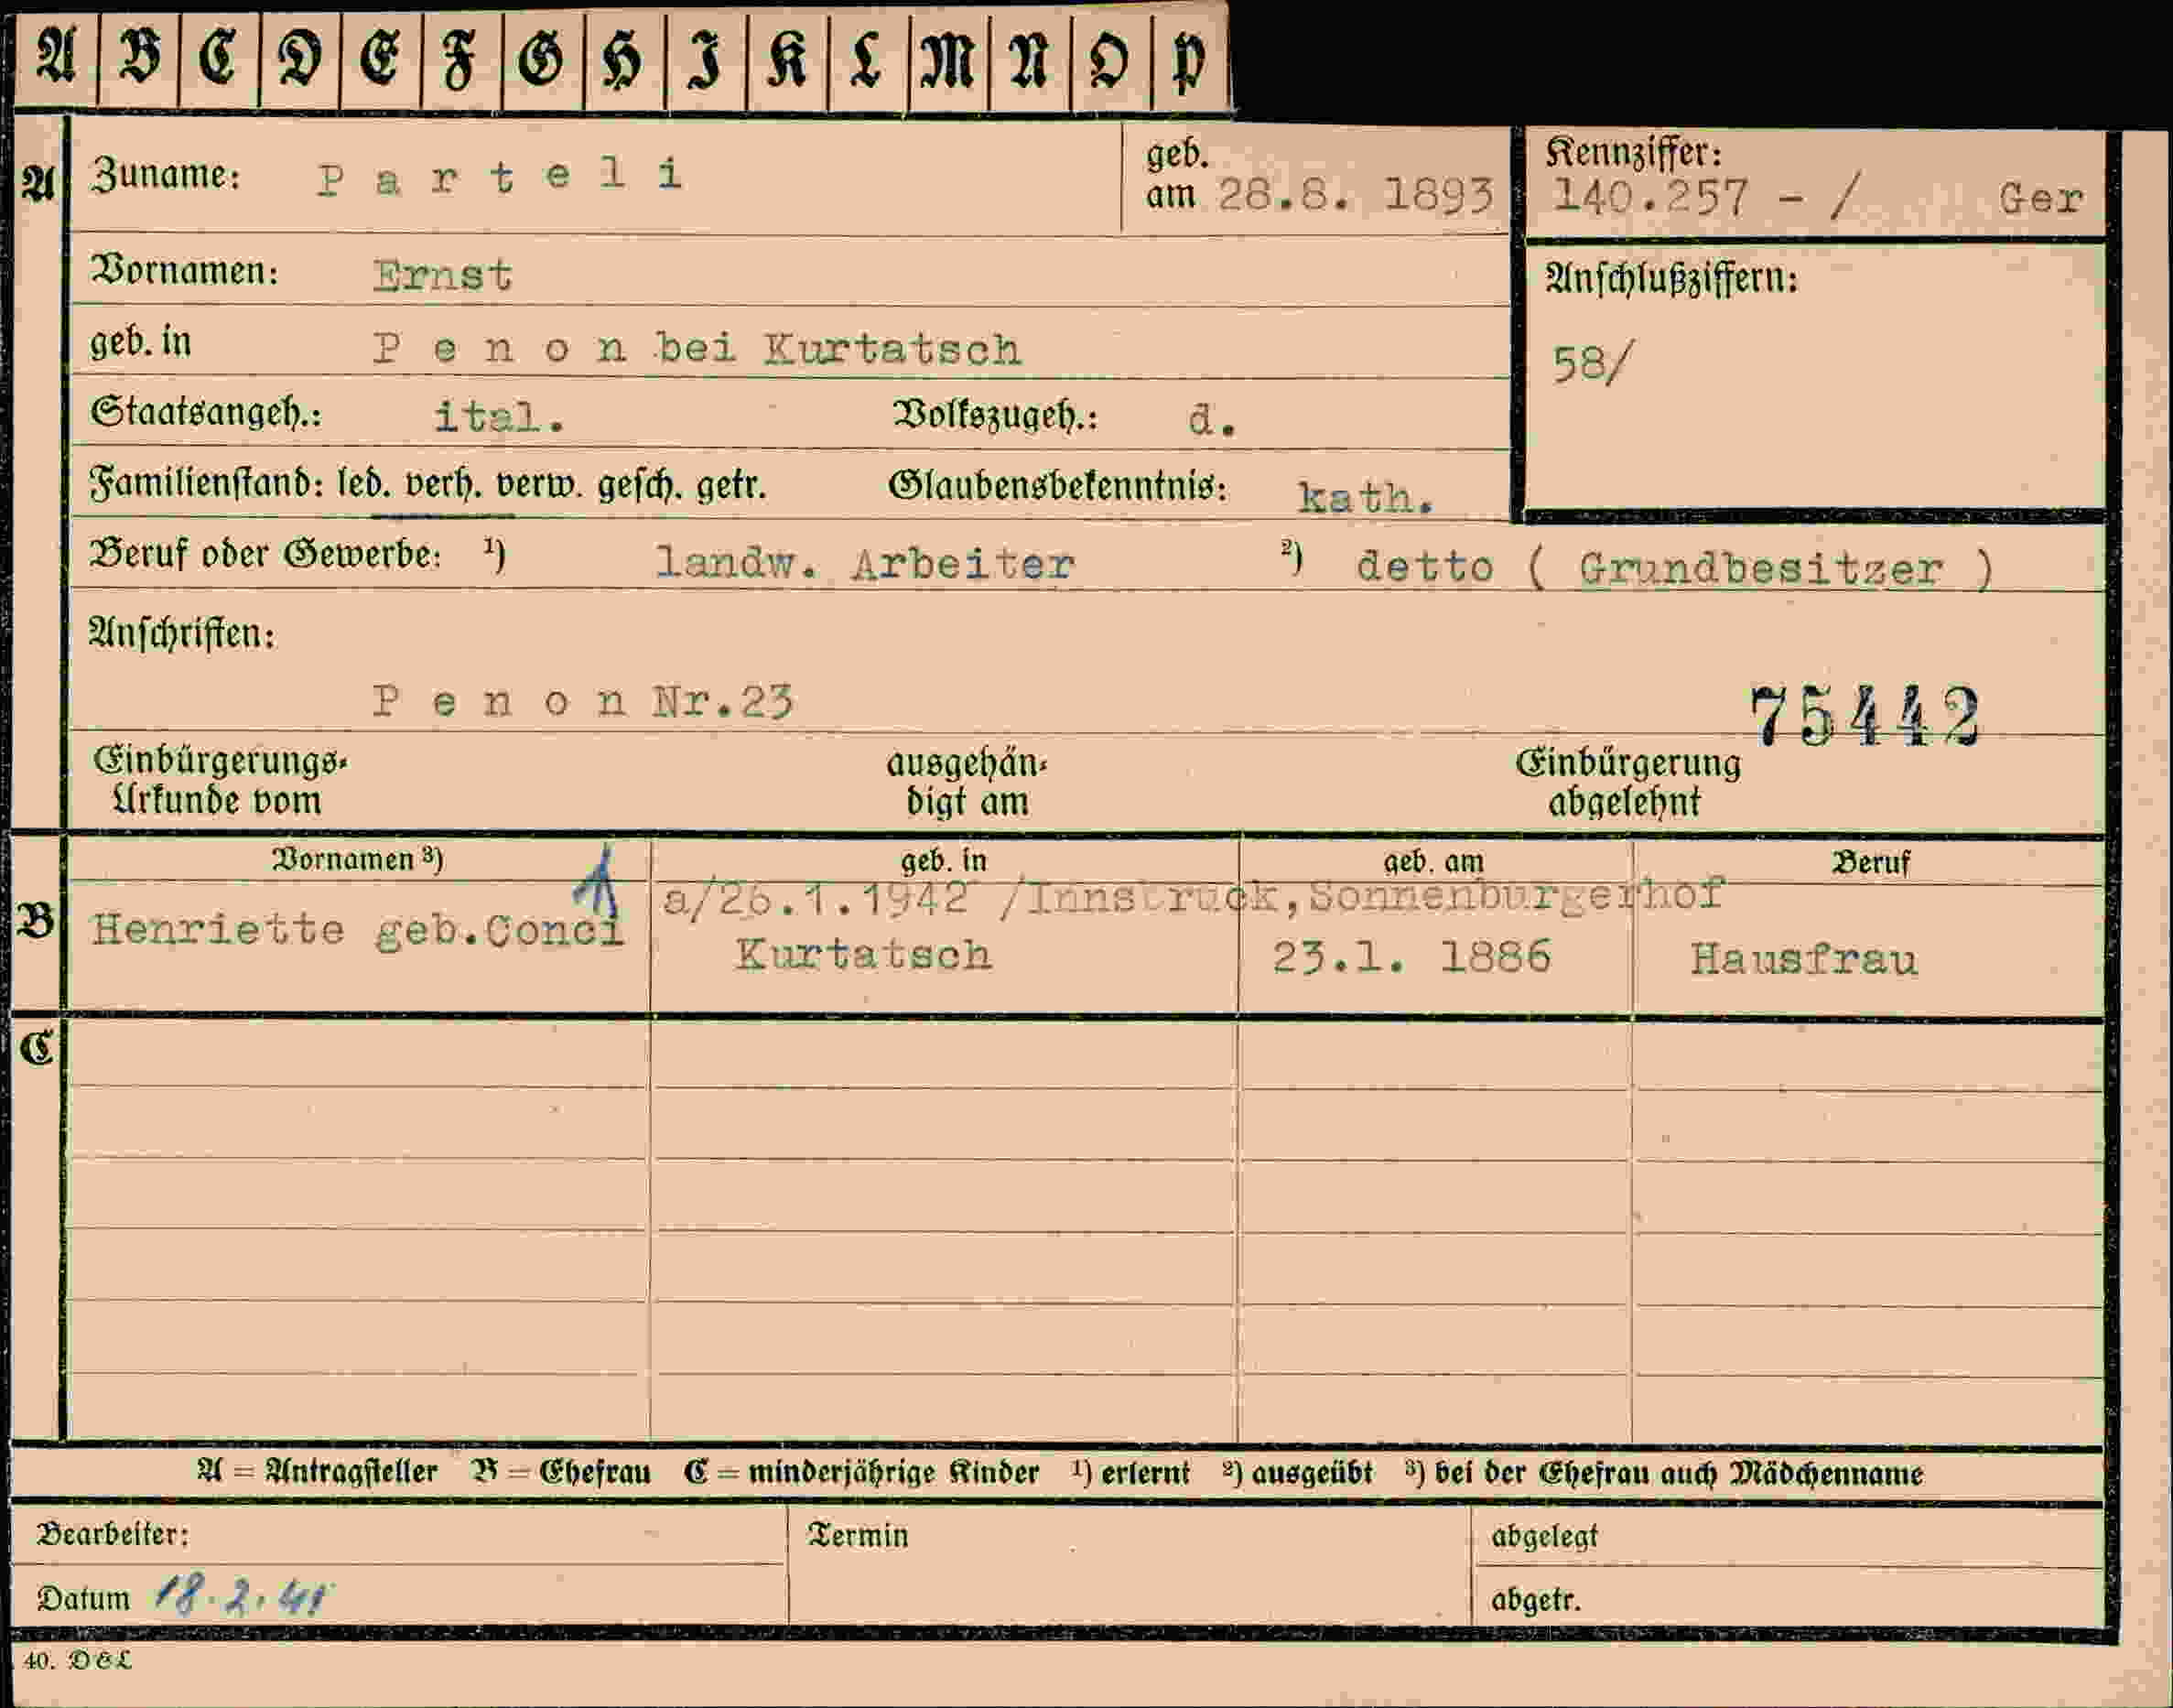 A B C D E F G H I K L M N O P
A Zuname: P a r t e l i geb. am 28.8. 1893 Kennziffer: 140.257 - / Ger
Vornamen: Ernst Anschlußziffern:
geb. in P e n o n bei Kurtatsch 58/
Staatsangeh.: ital. Volkszugeh.: d.
Familienstand: led. verh. verw. gesch. getr. Glaubensbekenntnis: kath.
Beruf oder Gewerbe: ¹) landw. Arbeiter ²) detto ( Grundbesitzer )
Anschriften:
P e n o n Nr.23 75442
Einbürgerungs- ausgehän- Einbürgerung
Urkunde vom digt am abgelehnt
Vornamen ³) geb. in geb. am Beruf
a/26.1.1942 /Innsbruck,Sonnenburgerhof
B Henriette geb.Conci Kurtatsch 23.1. 1886 Hausfrau
C
A = Antragsteller B = Ehefrau C = minderjährige Kinder ¹) erlernt ²) ausgeübt ³) bei der Ehefrau auch Mädchenname
Bearbeiter: Termin abgelegt
Datum 18.2.41 abgetr.
40. D&L